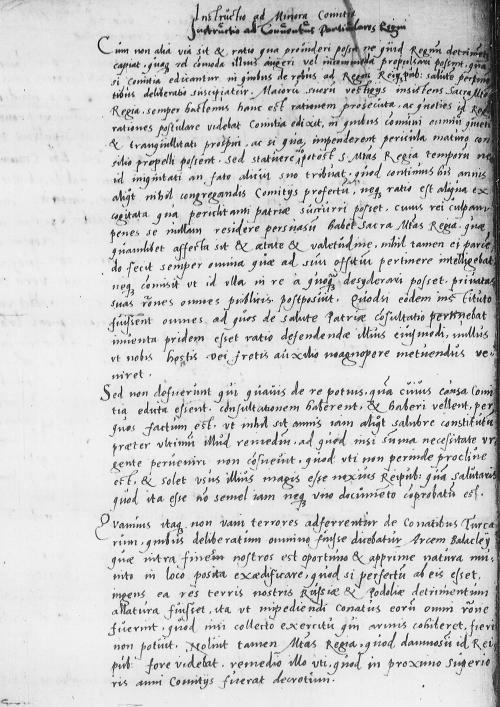 Instructio ad Minora Comitia
Instructio ad Conventus Particulares Regni
Cum non alia via sit & ratio qua provideri posset ne quid Regnum detrimenti
capiat, quoq; rei comoda illius augeri vel incommoda propulsari possent, quam
si comitia edicantur in quibus de rebus ad Regni Reiq; pub: salutem pertinen
tibus deliberatio suscipiatur. Maiorum suorum vestigijs insistens Sacra Mtas
Regia, semper hactenus hanc est rationem prosecuta, ac quoties id Regni
rationes postulare videbat Comitia edixit, in quibus communi omnium quieti
& tranquillitati prospici, ac si qua impenderent pericula maturo con
silio propelli possent. Sed statuere non potest S. Mtas Regia temporum ne
id iniquitati an fato alicui suo tribuat, quod continuis his annis
aliqt nihil congregandis Comitijs profectum, neq; ratio est aliqua ex
cogitata qua periclitanti patriae succurri posset. cuius rei culpam
penes se nullam residere persuasum habet Sacra Mtas Regia. quae
quamlibet affecta sit & aetate & valetudine, nihil tamen ei parcen
do fecit semper omnia quae ad suum officium pertinere intelligebat
neq; comisit ut id ulla in re a quoq; desyderari posset. privatas
suas rones omnes publicis postposuit. Quodsi eodem instituto
fuissent omnes ad quos de salute Patriae consultatio pertinebat
inventa pridem esset ratio defendendae illius eiusmodi, nullius
ut nobis hostis vel fretis auxilio magnopere metuendus ve
niret.
Sed non defuerunt qui quamvis de re potius, qua cuius causa Comi
tia edicta essent, consultationem haberent, & haberi vellent, per
quos factum est, ut nihil sit annis iam aliqt salubre constitutum
praeter ultimum illud remedium, ad quod nisi summa necessitate ur
gente perveniri non consuevit, quod uti non perinde procline
est, & solet usus illius magis esse noxius Reipub: quam salutaris
quod ita esse no semel iam neq; uno documento coprobatum est.
Quamvis itaq; non vani terrores adferrentur de Conatibus Turca
rum, quibus deliberatum omnino fuisse dicebatur Arcem Balacley
quae intra fines nostros est oportuno & apprime natura mu
nito in loco posita exaedificare, quod si perfectum ab eis esset,
ingens ea res terris nostris Russiae & Podoliae detrimentum
allatura fuisset, ita ut impediendi conatus eorum omni rone
fuerint, quod nisi collecto exercitu qui armis cohiberet, fieri
non potuit. Noluit tamen Mtas Regia, quod damnosum id Rei
pub: fore videbat, remedio illo uti, quod in proximo superio
ris anni Comitijs fuerat decretum.